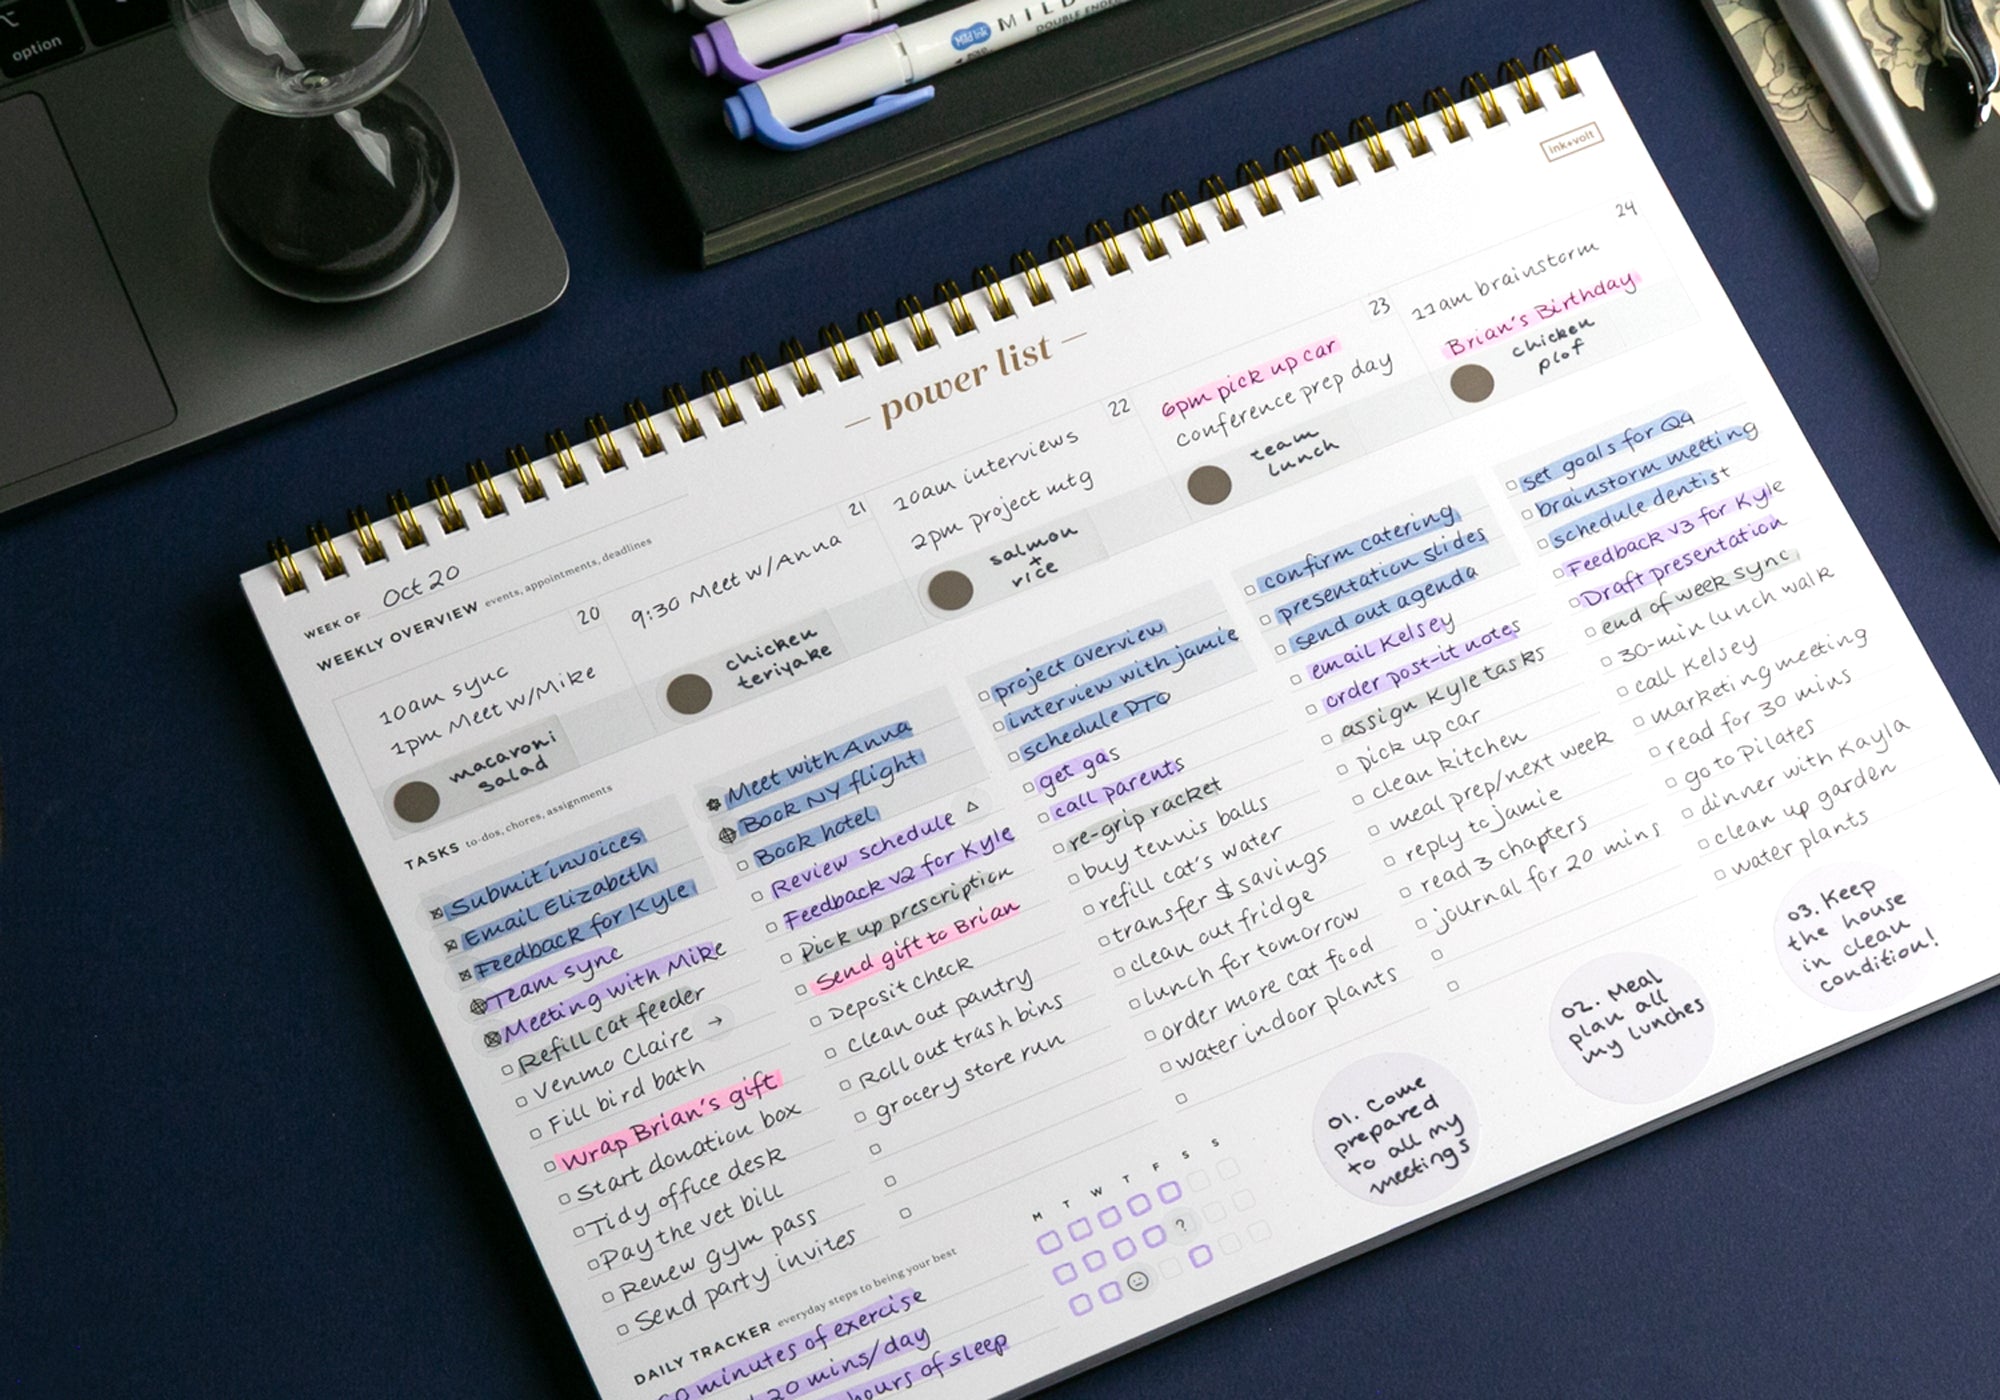 option
Mild ink
MILD
DOUBLE ENDED
ink+volt
— power list —
WEEK OF Oct 20
WEEKLY OVERVIEW events, appointments, deadlines
20
10am sync
1pm Meet w/Mike
macaroni
salad
21
9:30 Meet w/Anna
chicken
teriyake
22
10am interviews
2pm project mtg
salmon
+
rice
23
6pm pick up car
conference prep day
team
lunch
24
11am brainstorm
Brian's Birthday
chicken
plof
TASKS to-dos, chores, assignments
Submit invoices
Email Elizabeth
Feedback for Kyle
Team sync
Meeting with Mike
Refill cat feeder
Venmo Claire →
Fill bird bath
Wrap Brian's gift
Start donation box
Tidy office desk
Pay the vet bill
Renew gym pass
Send party invites
Meet with Anna
Book NY flight
Book hotel
Review schedule
Feedback v2 for Kyle
Pick up prescription
Send gift to Brian
Deposit check
Clean out pantry
Roll out trash bins
grocery store run
project overview
interview with jamie
schedule PTO
get gas
call parents
re-grip racket
buy tennis balls
refill cat's water
transfer $ savings
clean out fridge
lunch for tomorrow
order more cat food
water indoor plants
confirm catering
presentation slides
send out agenda
email Kelsey
order post-it notes
assign Kyle tasks
pick up car
clean kitchen
meal prep/next week
reply to jamie
read 3 chapters
journal for 20 mins
set goals for Q4
brainstorm meeting
schedule dentist
Feedback v3 for Kyle
Draft presentation
end of week sync
30-min lunch walk
call Kelsey
marketing meeting
read for 30 mins
go to Pilates
dinner with Kayla
clean up garden
water plants
DAILY TRACKER everyday steps to being your best
minutes of exercise
20 mins/day
hours of sleep
M T W T F S S
?
01. Come
prepared
to all my
meetings
02. Meal
plan all
my lunches
03. Keep
the house
in clean
condition!